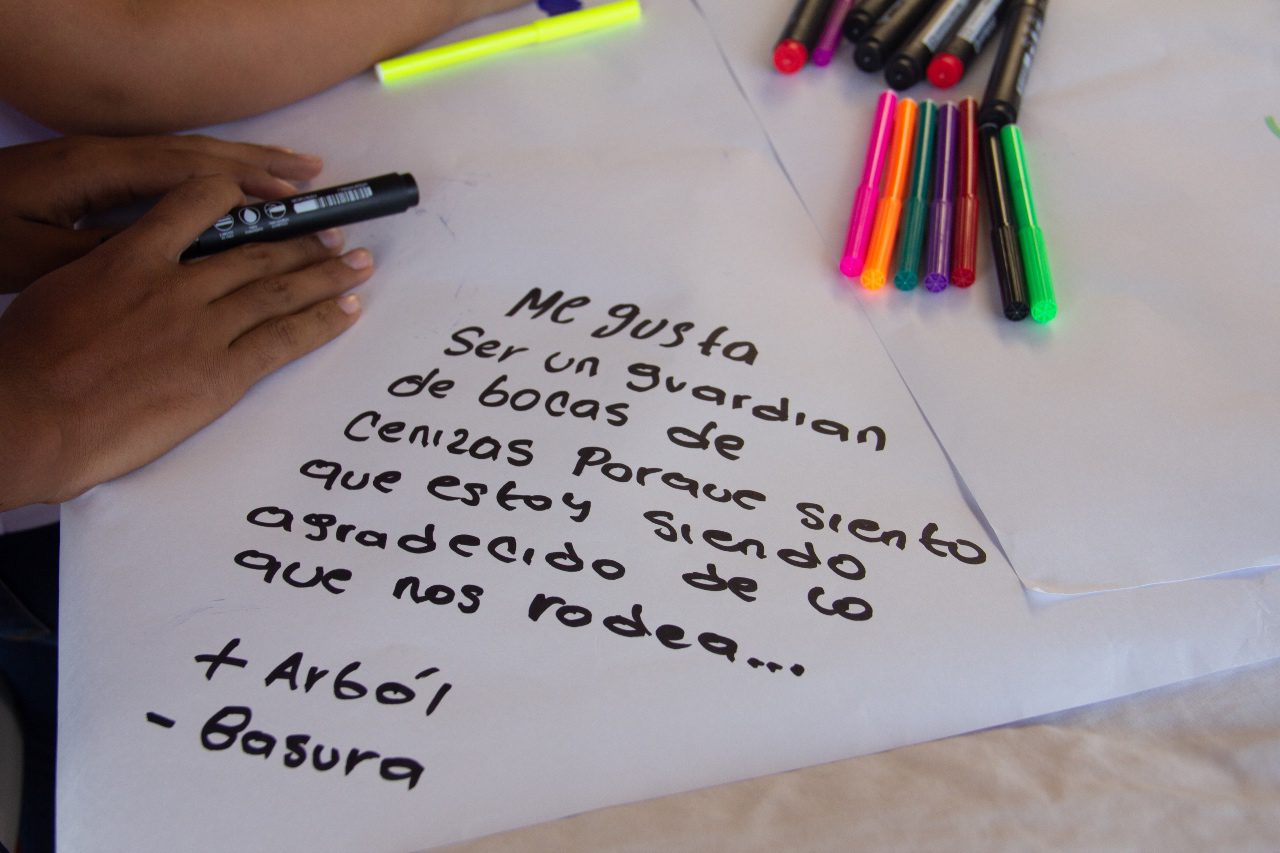 Me gusta
Ser un guardian
de bocas de
Cenizas Porque siento
que estoy siendo
agradecido de lo
que nos rodea...
+ Arból
- Basura